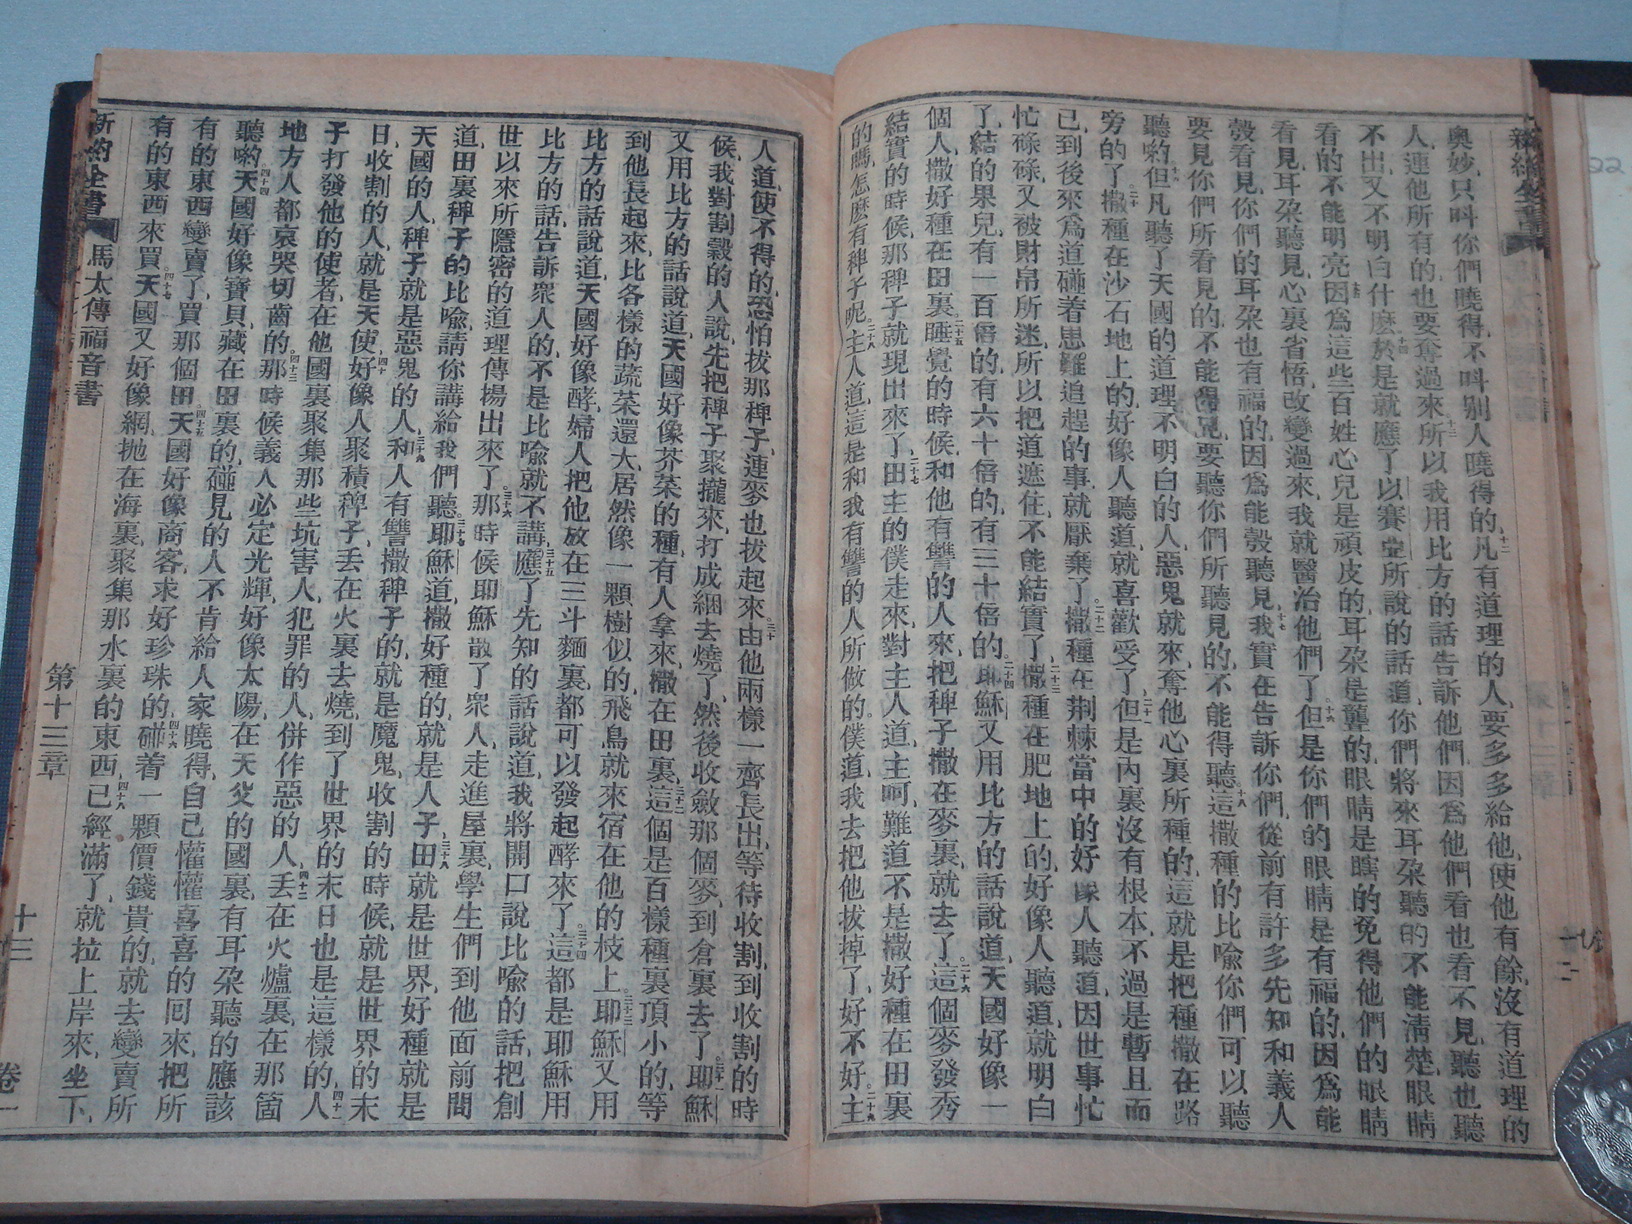 新約全書
奧妙只呌你們曉得不呌别人曉得的十二凡有道理的人要多多給他使他有餘沒有道理的
人連他所有的也要奪過來十三所以我用比方的話告訴他們因爲他們看也看不見聽也聽
不出又不明白什麽十四於是就應了以賽亞所說的話道你們將來耳朶聽的不能淸楚眼睛
看的不能明亮十五因爲這些百姓心兒是頑皮的耳朶是聾的眼睛是瞎的免得他們的眼睛
看見耳朶聽見心裏省悟改變過來我就醫治他們了十六但是你們的眼睛是有福的因爲能
彀看見你們的耳朶也有福的因爲能彀聽見十七我實在告訴你們從前有許多先知和義人
要見你們所看見的不能得見要聽你們所聽見的不能得聽十八這撒種的比喩你們可以聽
聽喲十九但凡聽了天國的道理不明白的人惡鬼就來奪他心裏所種的這就是把種撒在路
旁的了二十撒種在沙石地上的好像人聽道就喜歡受了二十一但是內裏沒有根本不過是暫且而
已到後來爲道碰着患難追趕的事就厭棄了二十二撒種在荆棘當中的好像人聽道因世事忙
忙碌碌又被財帛所迷所以把道遮住不能結實了二十三撒種在肥地上的好像人聽道就明白
了結的果兒有一百倍的有六十倍的有三十倍的二十四耶穌又用比方的話說道天國好像一
個人撒好種在田裏二十五睡覺的時候和他有讐的人來把稗子撒在麥裏就去了二十六這個麥發秀
結實的時候那稗子就現出來了二十七田主的僕走來對主人道主呵難道不是撒好種在田裏
的嗎怎麽有稗子呢二十八主人道這是和我有讐的人所做的僕道我去把他拔掉了好不好二十九主
人道使不得的恐怕拔那稗子連麥也拔起來三十由他兩樣一齊長出等待收割到收割的時
候我對割穀的人說先把稗子聚攏來打成綑去燒了然後收斂那個麥到倉裏去了三十一耶穌
又用比方的話說道天國好像芥菜的種有人拿來撒在田裏三十二這個是百樣種裏頂小的等
到他長起來比各樣的蔬菜還大居然像一顆樹似的飛鳥就來宿在他的枝上三十三耶穌又用
比方的話說道天國好像酵婦人把他放在三斗麵裏都可以發起酵來了三十四這都是耶穌用
比方的話告訴衆人的不是比喩就不講三十五應了先知的話說道我將開口說比喩的話把創
世以來所隱密的道理傳揚出來了三十六那時候耶穌散了衆人走進屋裏學生們到他面前問
道田裏稗子的比喩請你講給我們聽三十七耶穌道撒好種的就是人子三十八田就是世界好種就是
天國的人稗子就是惡鬼的人三十九和人有讐撒稗子的就是魔鬼收割的時候就是世界的末
日收割的人就是天使四十好像人聚積稗子丢在火裏去燒到了世界的末日也是這樣的四十一人
子打發他的使者在他國裏聚集那些坑害人犯罪的人倂作惡的人四十二丢在火爐裏在那箇
地方人都哀哭切齒的四十三那時候義人必定光輝好像太陽在天父的國裏有耳朶聽的應該
聽喲四十四天國好像寶貝藏在田裏的碰見的人不肯給人家曉得自己懽懽喜喜的回來把所
有的東西變賣了買那個田四十五天國好像商客求好珍珠的四十六碰着一顆價錢貴的就去變賣所
有的東西來買四十七天國又好像網抛在海裏聚集那水裏的東西四十八已經滿了就拉上岸來坐下
新約全書 馬太傳福音書 第十三章 十三 卷一